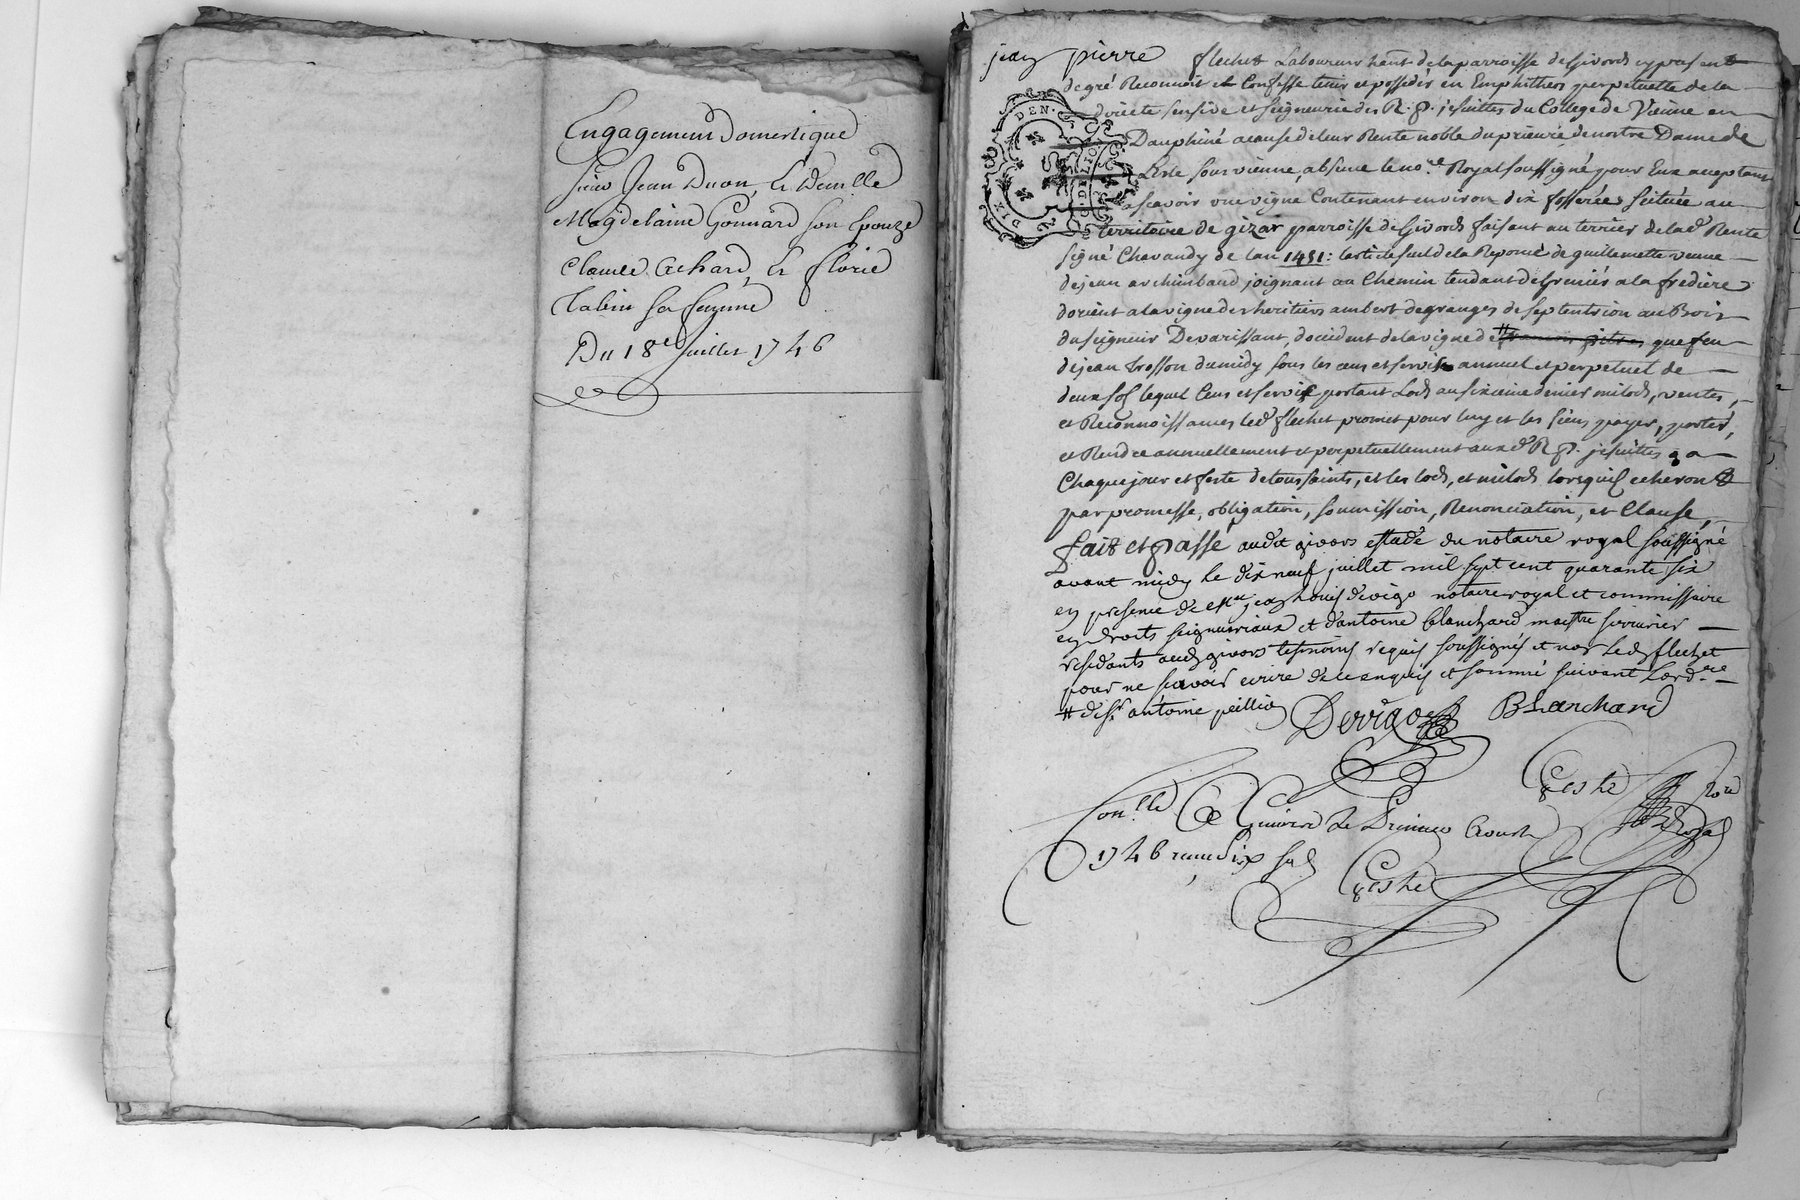 Engagement Domestique
Sieur Jean Duon, Et Demlle
Magdelaine Gonnard son Epouze
Claude Achard, Et florie
Tabin sa femme
Du 18e Juillet 1746
jean pierre flechet Laboureur habt de la parroisse de Givords cy present
de gré Reconnoit et Confesse tenir et posseder en Emphitheos perpetuelle de la
directe sensive et seigneurie des R. P. jesuittes du College de Vienne en
Dauphiné a cause de leur Rente noble du prieuré de nostre Dame de
Lisle sous vienne, absens le nore Royal soussigné pour Eux acceptant
ascavoir une vigne Contenant environ dix fosserées scituée au
territoire de gizar parroisse de Givords faisant au terrier de lad. Rente
signé Chavandy de lan 1451: larticle seul de la Reponse de guillemette veuve
de jean archimbaud joignant au Chemin tendant de a la fredière
dorient a la vigne des heritiers ambert degranges de septentrion au Bois
du seigneur Devarissant, doccident de la vigne de # que feu
de jean trosson du midy sous les cens et servis annuel et perpetuel de
deux sols lequel Cens et servis portant Lods au sixieme denier milods, ventes,
et Reconnoissances led. flechet promet pour luy et les siens payer, porter,
et Rendre annuellement et perpetuellement auxd. R P. jesuittes, a
Chaque jour et feste de tous saints, et les lods, et milods lorsquils echeront
par promesse, obligation, soumission, Renonciation, et Clause,
fait et passé audit givors estude du notaire royal soussigné
avant midy le dix neuf juillet mil sept cent quarante six
en presence de Me jean Louis devigo notaire royal et commissaire
en droits seigneuriaux et d'antoine blanchard maistre serrurier
residants aud. givors tesmoins requis soussignés et non led. flechet
pour ne scavoir ecrire de ce enquis et sommé suivant Lordce
# de sr. antoine peillion Devigo Blanchard
Geste nore Royal
Conlle a Givord Le 1746 recu dix sols
Geste
DIX DEN.
G. DE LION